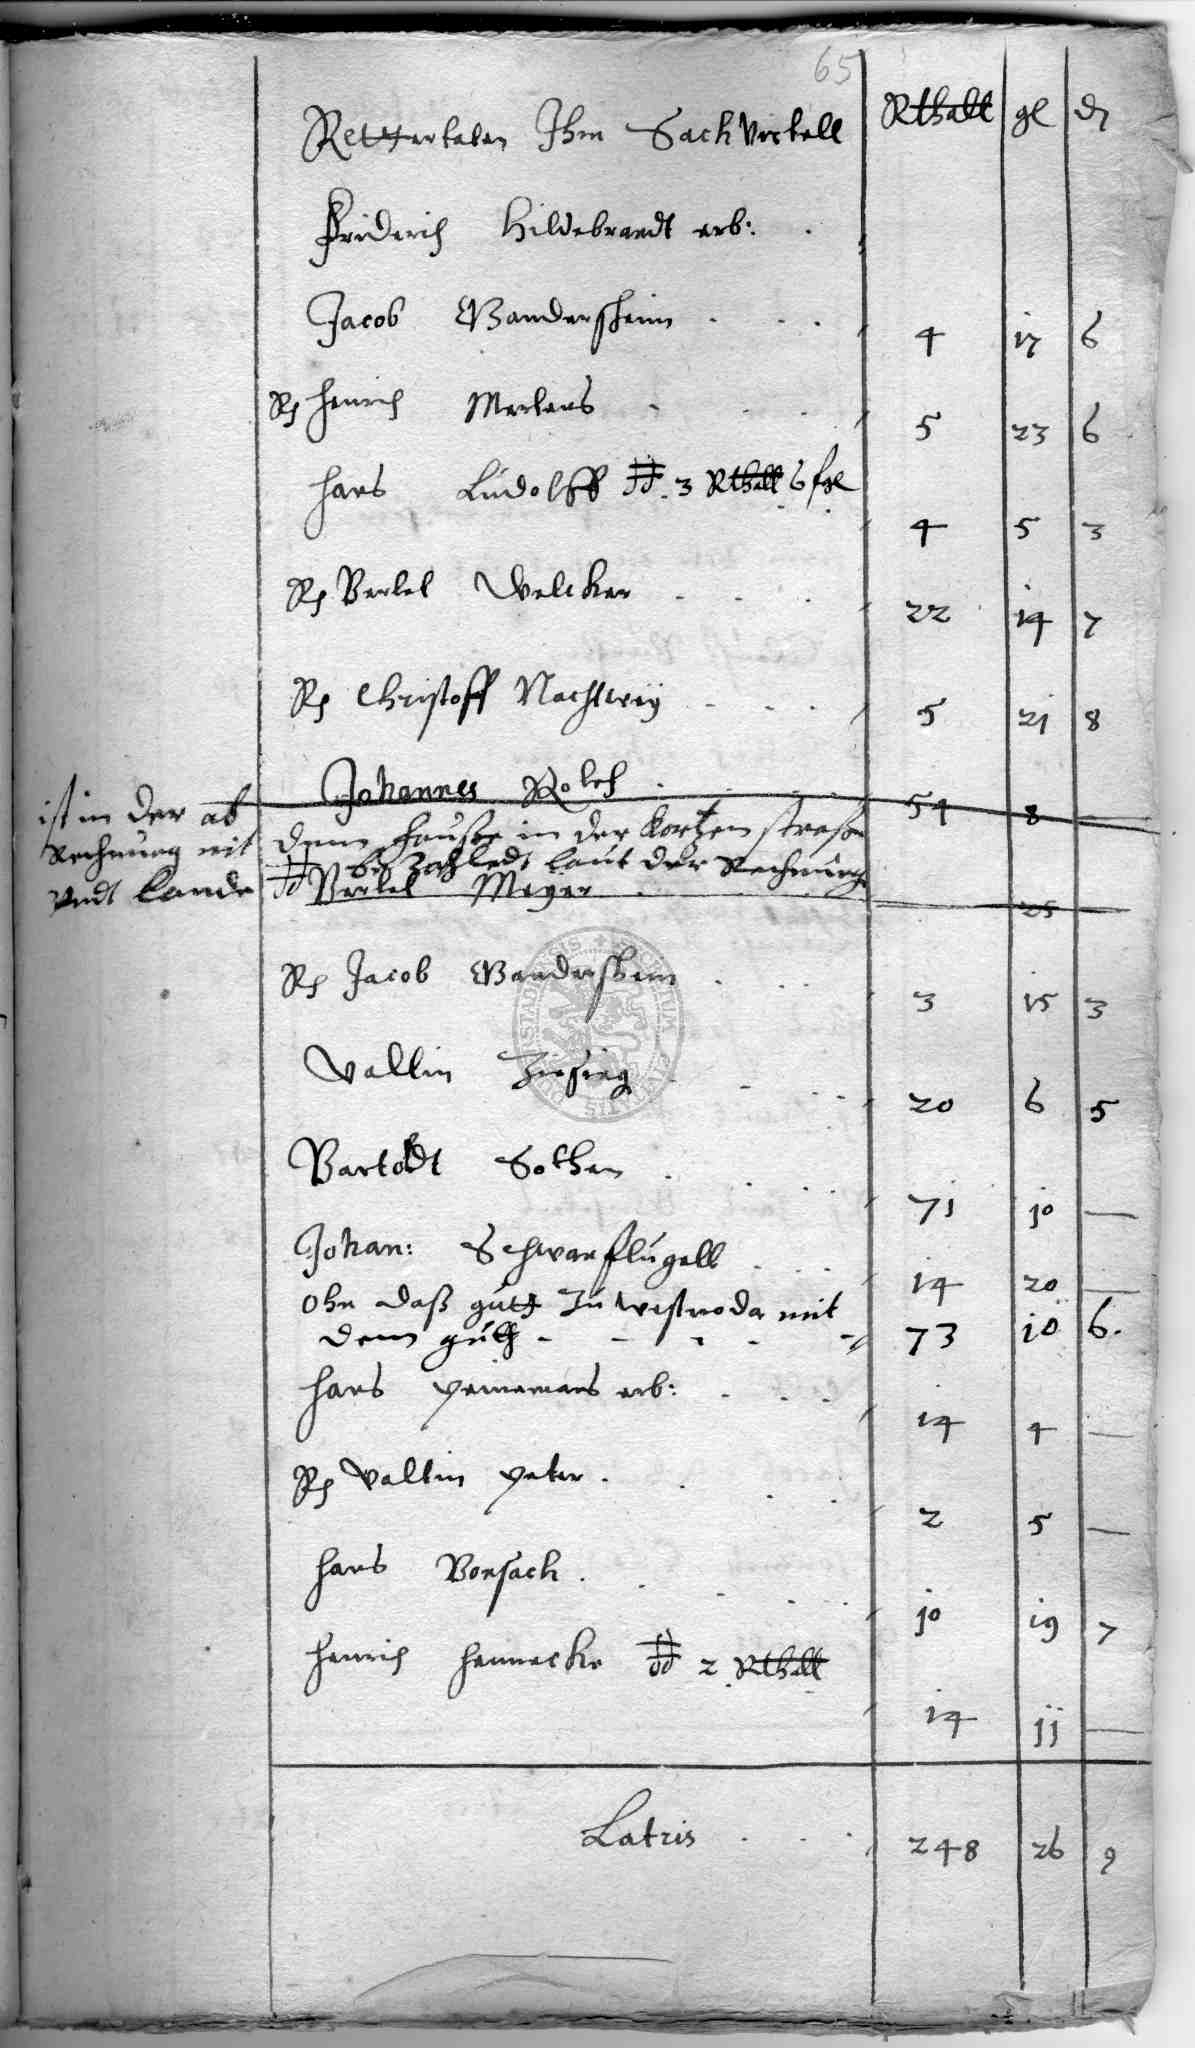 65
Rettertaten Ihm Sachvirtell Rthall gl d
Friderich Hildebrandt erb:
Jacob Gandersheim 4 17 6
Rp Henrich Mertens 5 23 6
Hans Ludolff dd. 3 Rthall 6 fgl 4 5 3
Rp Bertel Welcker 22 14 7
Rp Christoff Nachtweÿ 5 21 8
Johannes Rolef 54 8 —
ist in der ab
Rechnung mit
Undt Lande
dem Hauße in der Kortzen straße
bezahledt laut der Rechnung
dd Bertel Meyer 25 —
Rp Jacob Gandersheim 3 15 3
Valtin Ziesing 20 6 5
Bartoldt Sothen 71 10 —
Johan: Schwanflugell 14 20 —
Ohn daß gutt Zu westroda mit
dem gutt 73 10 6.
Hans Heinemans erb: 14 4 —
Rp Valtin Peter. 2 5 —
Hans Bonsach. 10 19 7
Henrich Hennecke dd 2 Rthall 14 11 —
Latris 248 26 9